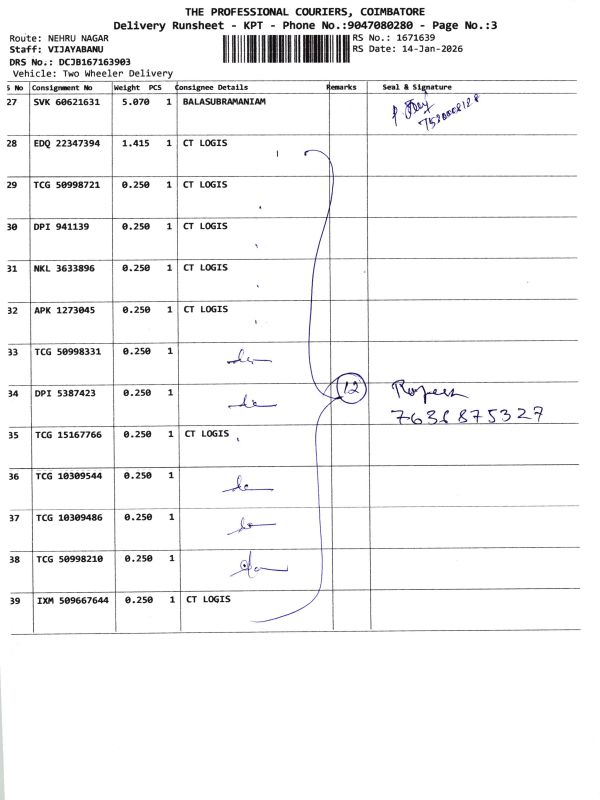 THE PROFESSIONAL COURIERS, COIMBATORE
Delivery Runsheet - KPT - Phone No.:9047080280 - Page No.:3
Route: NEHRU NAGAR RS No.: 1671639
Staff: VIJAYABANU RS Date: 14-Jan-2026
DRS No.: DCJB167163903
Vehicle: Two Wheeler Delivery
S No Consignment No Weight PCS Consignee Details Remarks Seal & Signature
27 SVK 60621631 5.070 1 BALASUBRAMANIAM
28 EDQ 22347394 1.415 1 CT LOGIS
29 TCG 50998721 0.250 1 CT LOGIS
30 DPI 941139 0.250 1 CT LOGIS
31 NKL 3633896 0.250 1 CT LOGIS
32 APK 1273045 0.250 1 CT LOGIS
33 TCG 50998331 0.250 1
34 DPI 5387423 0.250 1 12
7636875327
35 TCG 15167766 0.250 1 CT LOGIS
36 TCG 10309544 0.250 1
37 TCG 10309486 0.250 1
38 TCG 50998210 0.250 1
39 IXM 509667644 0.250 1 CT LOGIS